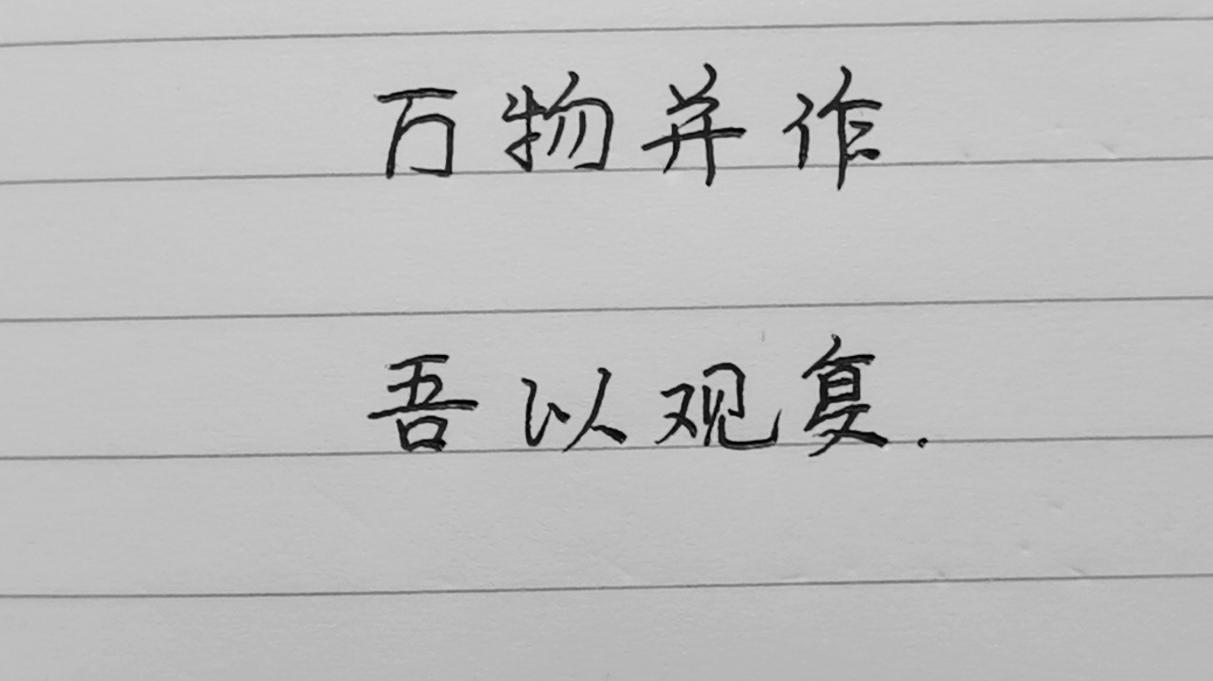 万物并作
吾以观复.